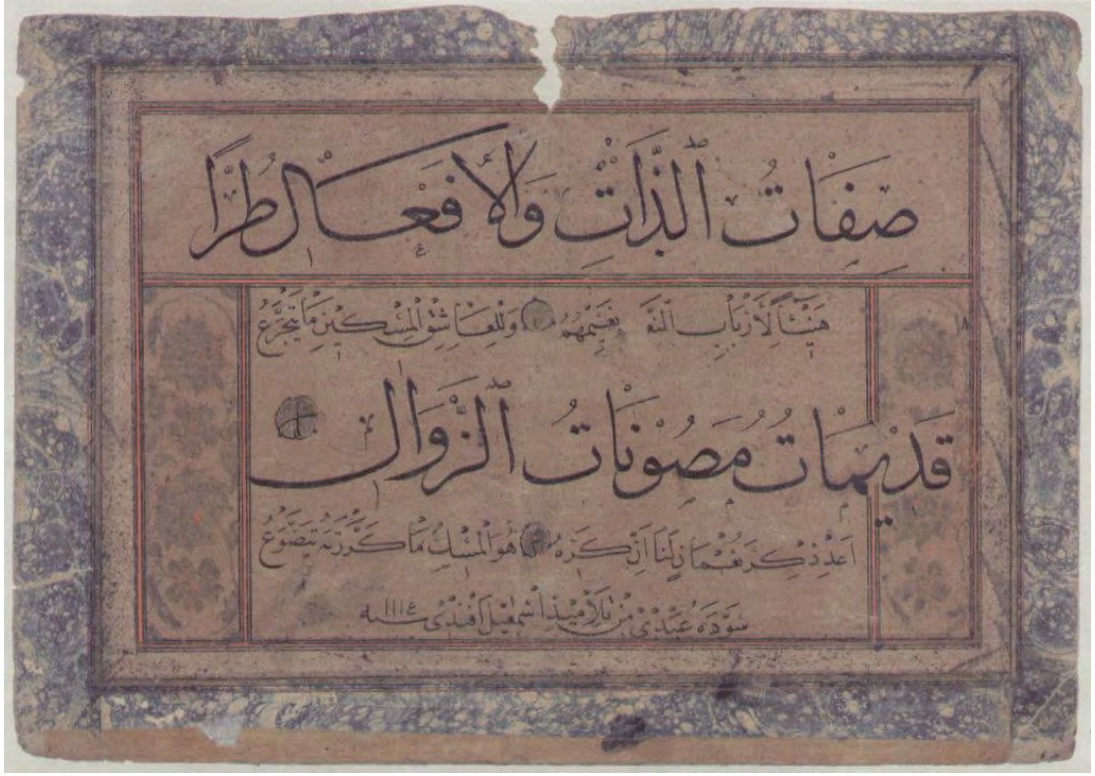 صِفَاتُ الذَّاتِ وَالأَفْعَالِ طُرًّا
هَنِيئًا لِأَرْبَابِ النَّعِيمِ نَعِيمُهُمْ وَلِلْعَاشِقِ الْمِسْكِينِ مَا يَتَجَرَّعُ
قَدِيمَاتٌ مَصُونَاتُ الزَّوَالِ
اَعِدْ ذِكْرَ نُعْمَانٍ لَنَا اِنَّ ذِكْرَهُ هُوَ الْمِسْكُ مَا كَرَّرْتَهُ يَتَضَوَّعُ
سَوَّدَهُ عَبْدِي مِنْ تَلَامِيذِ اسْمَعِيل اَفَنْدِي سنه ١١١٤